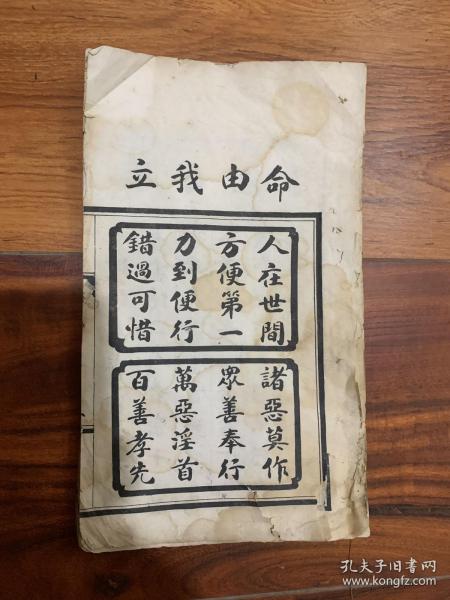 命由我立
人在世間
方便第一
力到便行
錯過可惜
諸惡莫作
眾善奉行
萬惡淫首
百善孝先
孔夫子旧书网
www.kongfz.com